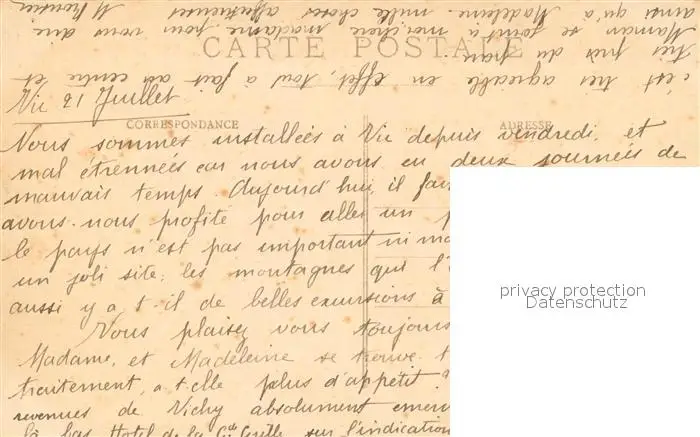 c'est très agréable en effet, tout à fait au centre et
très près du parc.
Maman se joint à moi chère madame pour vous dire
ainsi qu'à Madeleine mille choses affectueuses
CARTE POSTALE
Vic 12 Juillet
CORRESPONDANCE
ADRESSE
Nous sommes installées à Vic depuis vendredi, et
mal étrennées car nous avons eu deux journées de
mauvais temps. Aujourd'hui, il
avons-nous profité pour aller un
le pays n'est pas important ni
un joli site; les montagnes qui
aussi y a t il de belles excursions à
Vous plaisez vous toujours
Madame, et Madeleine se trouve
traitement, a t elle plus d'appétit ?
revenues de Vichy absolument
là bas Hotel de la sur l'indication
privacy protection
Datenschutz